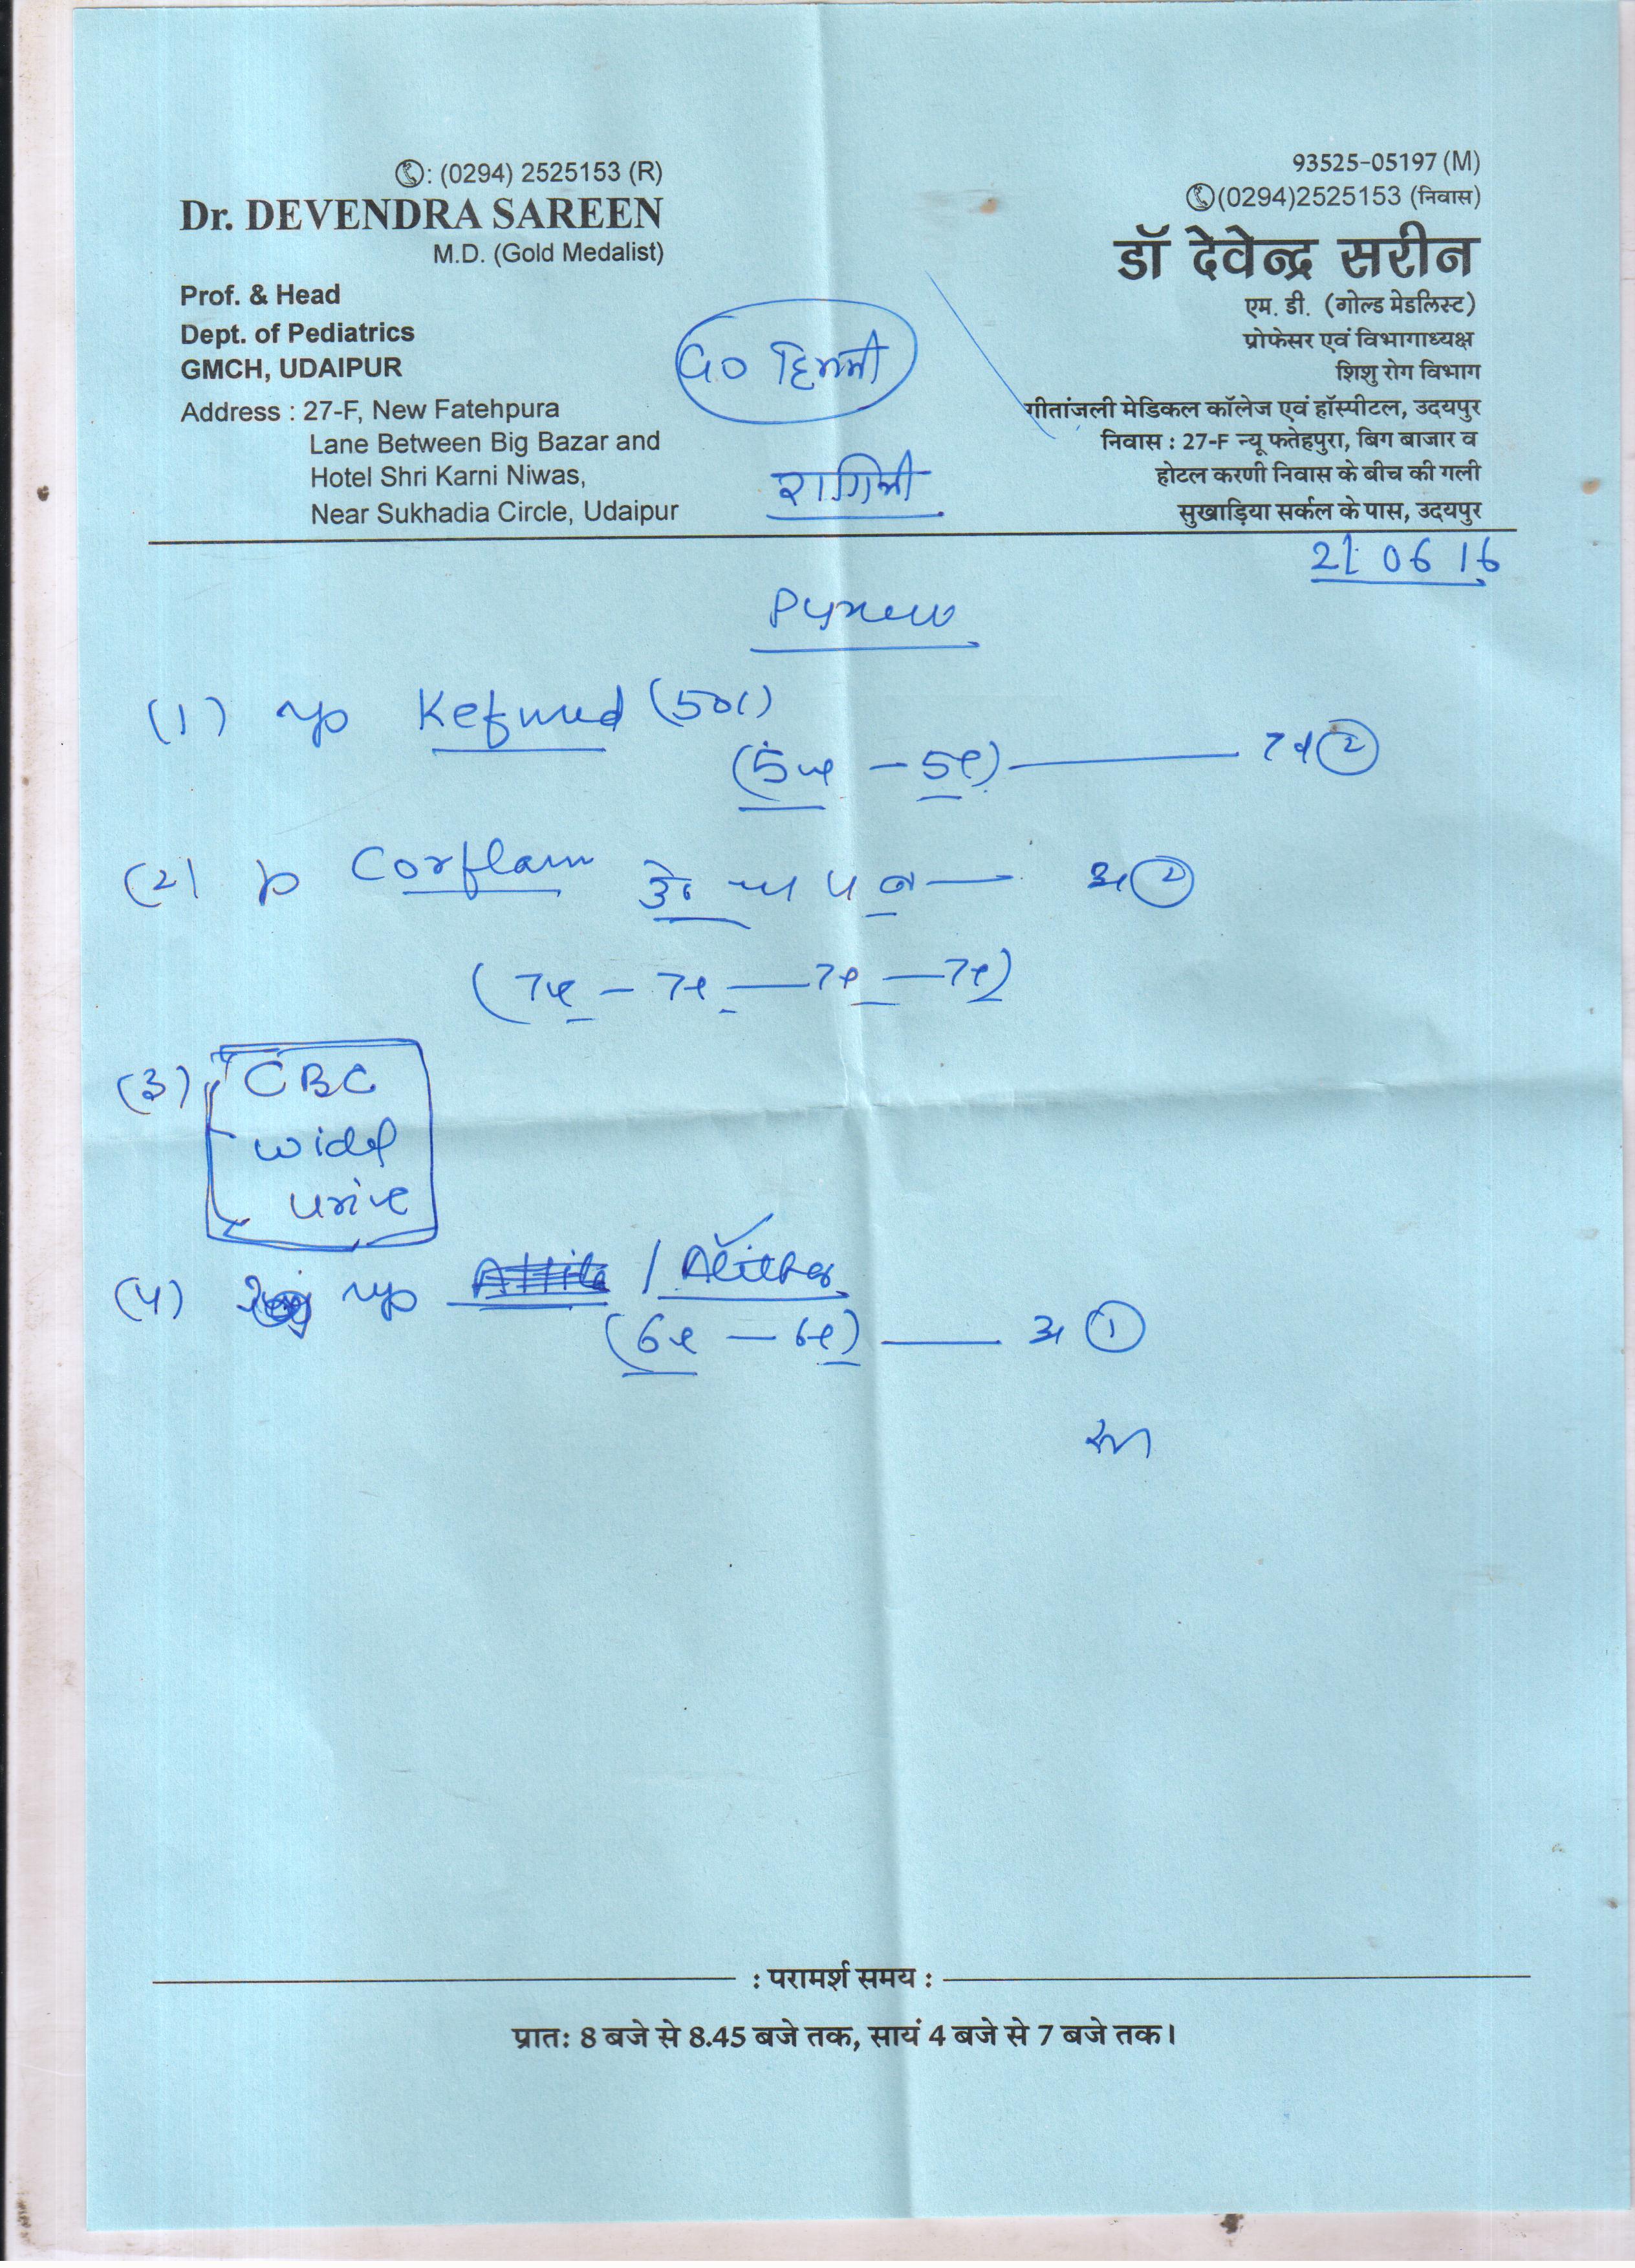 ✆: (0294) 2525153 (R)
Dr. DEVENDRA SAREEN
M.D. (Gold Medalist)
Prof. & Head
Dept. of Pediatrics
GMCH, UDAIPUR
Address : 27-F, New Fatehpura
Lane Between Big Bazar and
Hotel Shri Karni Niwas,
Near Sukhadia Circle, Udaipur
93525-05197 (M)
✆(0294)2525153 (निवास)
डॉ देवेन्द्र सरीन
एम. डी. (गोल्ड मेडलिस्ट)
प्रोफेसर एवं विभागाध्यक्ष
शिशु रोग विभाग
गीतांजली मेडिकल कॉलेज एवं हॉस्पीटल, उदयपुर
निवास : 27-F न्यू फतेहपुरा, बिग बाजार व
होटल करणी निवास के बीच की गली
सुखाड़िया सर्कल के पास, उदयपुर
रागिनी
21 06 16
(1) Kefmed (50)
(5 - 5)
(2) Corflam
(7 - 7 - 7 - 7)
(3) CBC
widal
urine
(4)
(6 - 6) 1
: परामर्श समय :
प्रातः 8 बजे से 8.45 बजे तक, सायं 4 बजे से 7 बजे तक।